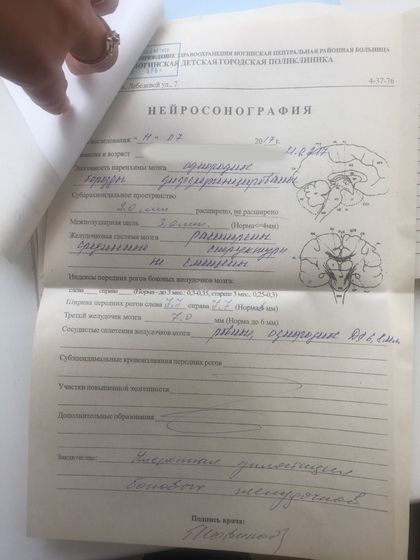 УЧРЕЖДЕНИЕ ЗДРАВООХРАНЕНИЯ НОГИНСКАЯ ЦЕНТРАЛЬНАЯ РАЙОННАЯ БОЛЬНИЦА
НОГИНСКАЯ ДЕТСКАЯ ГОРОДСКАЯ ПОЛИКЛИНИКА
Лебедевой ул., 7 4-37-76
НЕЙРОСОНОГРАФИЯ
исследования: "11" 07 2017 г.
и возраст
Эхогенность паренхимы мозга однородное
борозды дифференцированы
Субарахноидальное пространство
2.0 мм расширено, не расширено
Межполушарная щель 3,0 мм (Норма<=4мм)
Желудочковая система мозга расширена
срединные структуры
не смещены
Индексы передних рогов боковых желудочков мозга:
слева справа (Норма - до 3 мес.: 0,3-0,35, старше 3 мес.: 0,25-0,3)
Ширина передних рогов слева 7,7 справа 7,7 (Норма 4 мм)
Третий желудочек мозга 7.0 мм (Норма до 6 мм)
Сосудистые сплетения желудочков мозга ровные, однородные
Субэпендимальные кровоизлияния передних рогов
Участки повышенной эхогенности
Дополнительные образования
Заключение: Умеренная дилатация
боковых желудочков
Подпись врача: